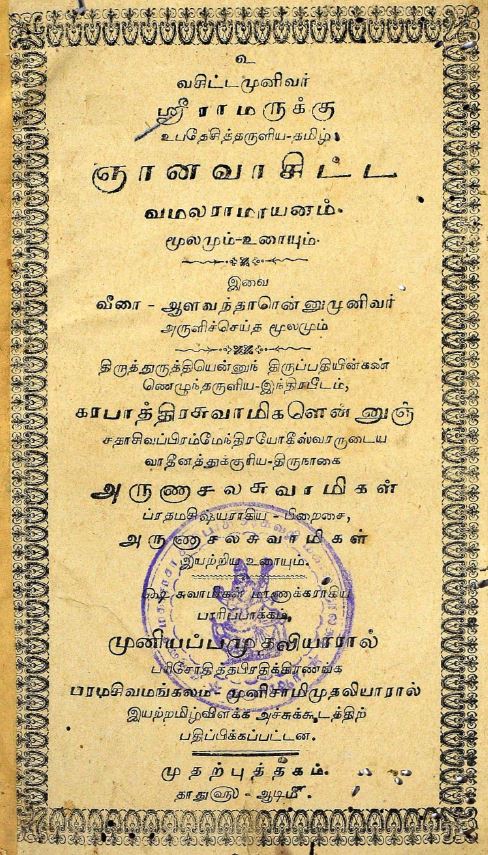 உ
வசிட்டமுனிவர்
ஸ்ரீராமருக்கு
உபதேசித்தருளிய-தமிழ்
ஞானவாசிட்ட
வமலராமாயணம்.
மூலமும்-உரையும்.
இவை
வீரை - ஆளவந்தாரென்னுமுனிவர்
அருளிச்செய்த மூலமும்
திருத்துருத்தியென்னுந் திருப்பதியின்கண்
ணெழுந்தருளிய-இந்திரபீடம்,
கரபாத்திரசுவாமிகளென்னுஞ்
சதாசிவப்பிரம்மேந்திரயோகீஸ்வரருடைய
வாதீனத்துக்குரிய-திருநாகை
அருணாசலசுவாமிகள்
ப்ரதமசிஷ்யராகிய - பிறைசை,
அருணாசலசுவாமிகள்
இயற்றிய உரையும்.
சுவாமிகள் மாணாக்கராகிய
பரரிப்பாக்கம்,
முனியப்பமுதலியாரால்
பரிசோதித்தபிரதிக்கிணங்க
பரமசிவமங்கலம் - முனிசாமிமுதலியாரால்
இயற்றமிழ்விளக்க அச்சுக்கூடத்திற்
பதிப்பிக்கப்பட்டன.
முதற்புத்தகம்.
தாது௵ - ஆடி௴.